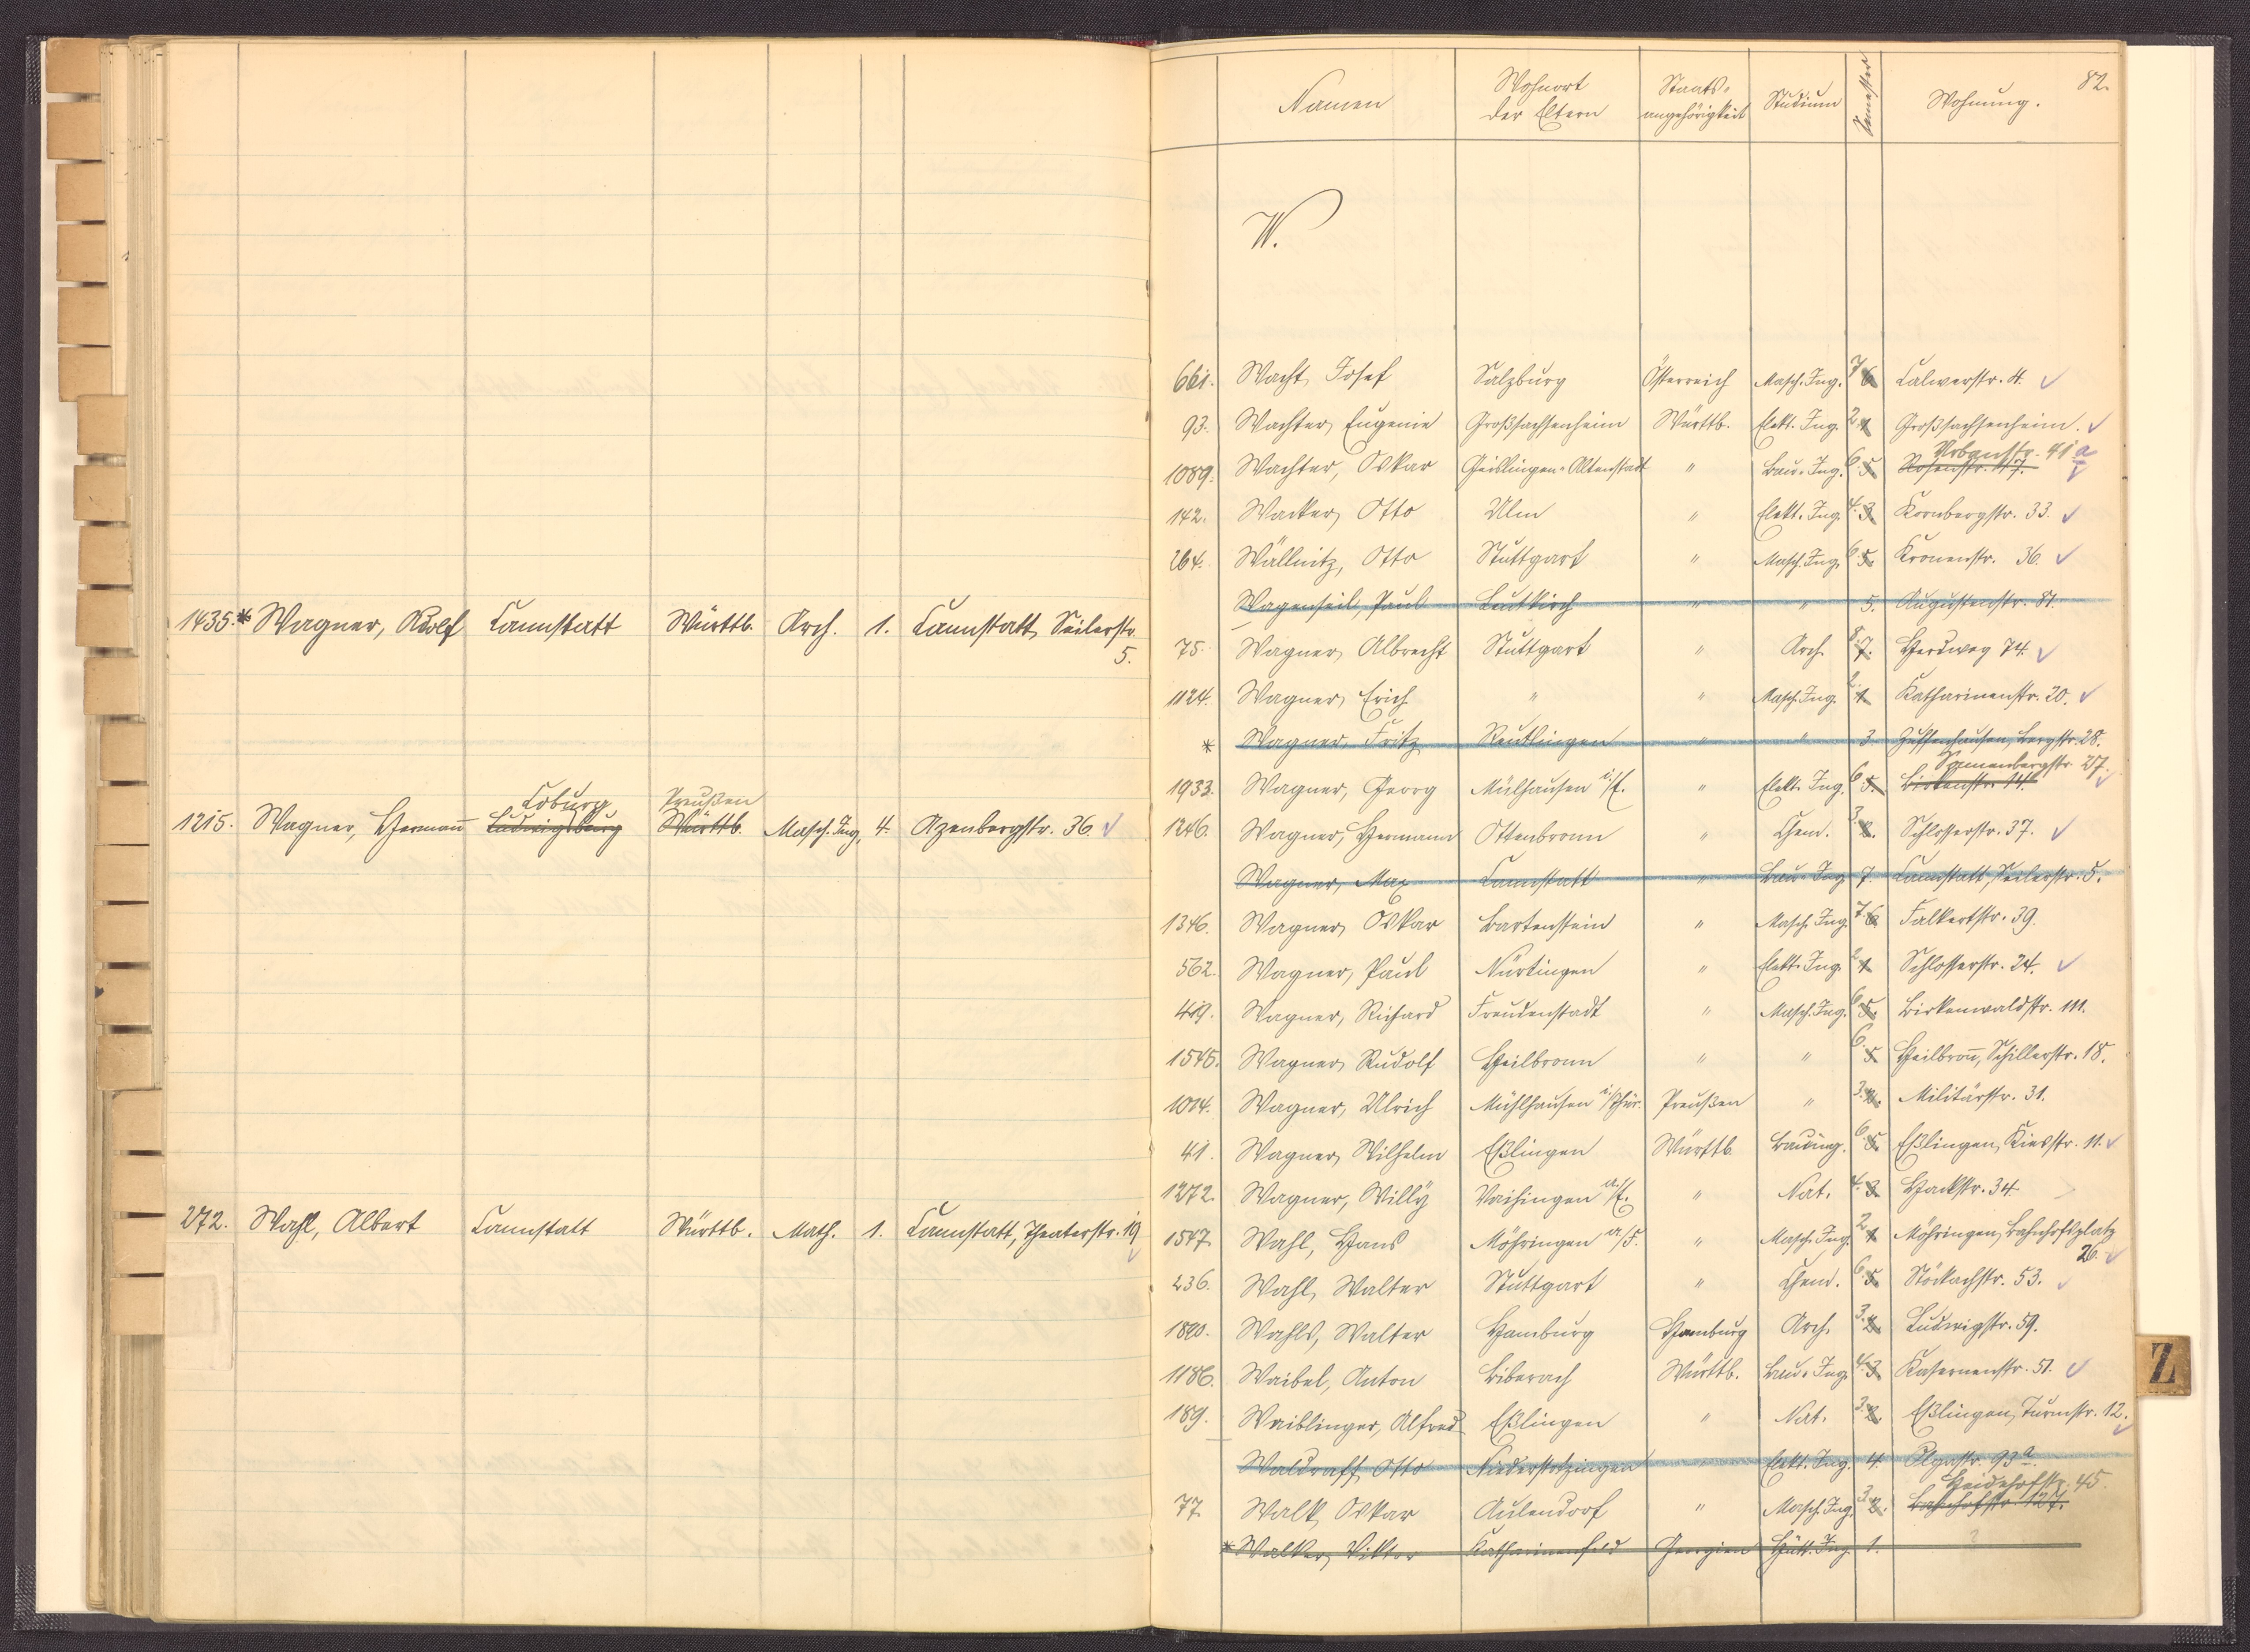 1435.* Wagner, Adolf Cannstatt Württb. Arch. 1. Cannstatt, Seilerstr.
5.
Coburg Preußen
1215. Wagner, Hermann Ludwigsburg Württb. Masch. Ing. 4. Azenbergstr. 36.
272. Wahl, Albert Cannstatt Württb. Math. 1. Cannstatt, Theaterstr. 19
82.
Namen Wohnort der Eltern Staats-angehörigkeit Studium Semester Wohnung.
W.
661. Wacht, Josef Salzburg Österreich Masch. Ing. 7 6. Calwerstr. 4.
93. Wachter, Eugenie Großsachsenheim Württb. Elekt. Ing. 2. 1. Großsachsenheim.
Urbanstr. 41a
1089. Wachter, Oskar Geislingen-Altenstadt " Bau-Ing. 6. 5. Rosenstr. 17.
142. Wacker, Otto Ulm " Elekt. Ing. 4. 3. Kornbergstr. 33.
264. Wällnitz, Otto Stuttgart " Masch. Ing. 6. 5. Kronenstr. 36.
Wagenseil, Paul Leutkirch " " 5. Augustenstr. 81.
75. Wagner, Albrecht Stuttgart " Arch. 8. 7. Herdweg 74.
1124. Wagner, Erich " " Masch. Ing. 2. 1. Katharinenstr. 20.
* Wagner, Fritz Reutlingen " " 3. Zuffenhausen, Bergstr. 28.
27.
1933. Wagner, Georg Mülhausen i/E. " Elekt. Ing. 6. 5. Birkenstr. 14.
1246. Wagner, Hermann Ottenbronn " Chem. 3. 2. Schlosserstr. 37.
Wagner, Max Cannstatt " Bau-Ing. 7. Cannstatt, Seilerstr. 5.
1346. Wagner, Oskar Bartenstein " Masch. Ing. 7. 6. Falkertstr. 39.
562. Wagner, Paul Nürtingen " Elekt. Ing. 2. 1. Schlosserstr. 24.
419. Wagner, Richard Freudenstadt " Masch. Ing. 6. 5. Birkenwaldstr. 111.
1545. Wagner, Rudolf Heilbronn " " 6. 5. Heilbronn, Schillerstr. 18.
1014. Wagner, Ulrich Mühlhausen i/Thür. Preußen " 3. 2. Militärstr. 31.
41. Wagner, Wilhelm Eßlingen Württb. Bauing. 6. 5. Eßlingen, Kiesstr. 11.
1272. Wagner, Willy Vaihingen a/E. " Nat. 4. 3. Hackstr. 34
1547. Wahl, Hans Möhringen a/F. " Masch. Ing. 2. 1. Möhringen, Bahnhofplatz
26.
236. Wahl, Walter Stuttgart " Chem. 6. 5. Stöckachstr. 53.
1820. Wahls, Walter Hamburg Hamburg Arch. 3. 2. Ludwigstr. 59.
1186. Waibel, Anton Biberach Württb. Bau-Ing. 4. 3. Kasernenstr. 51.
189. Waiblinger, Alfred Eßlingen " Nat. 3. 2. Eßlingen, Turmstr. 12.
Waldraff, Otto Niederstotzingen " Elekt. Ing. 4. Olgastr. 93a.
Heidehofstr. 45.
77. Walk, Oskar Aulendorf " Masch. Ing. 3. 2. Bahnhofstr. 127.
* Walker, Viktor Katharinenfeld Georgien Hütt. Ing. 1. ?
Z